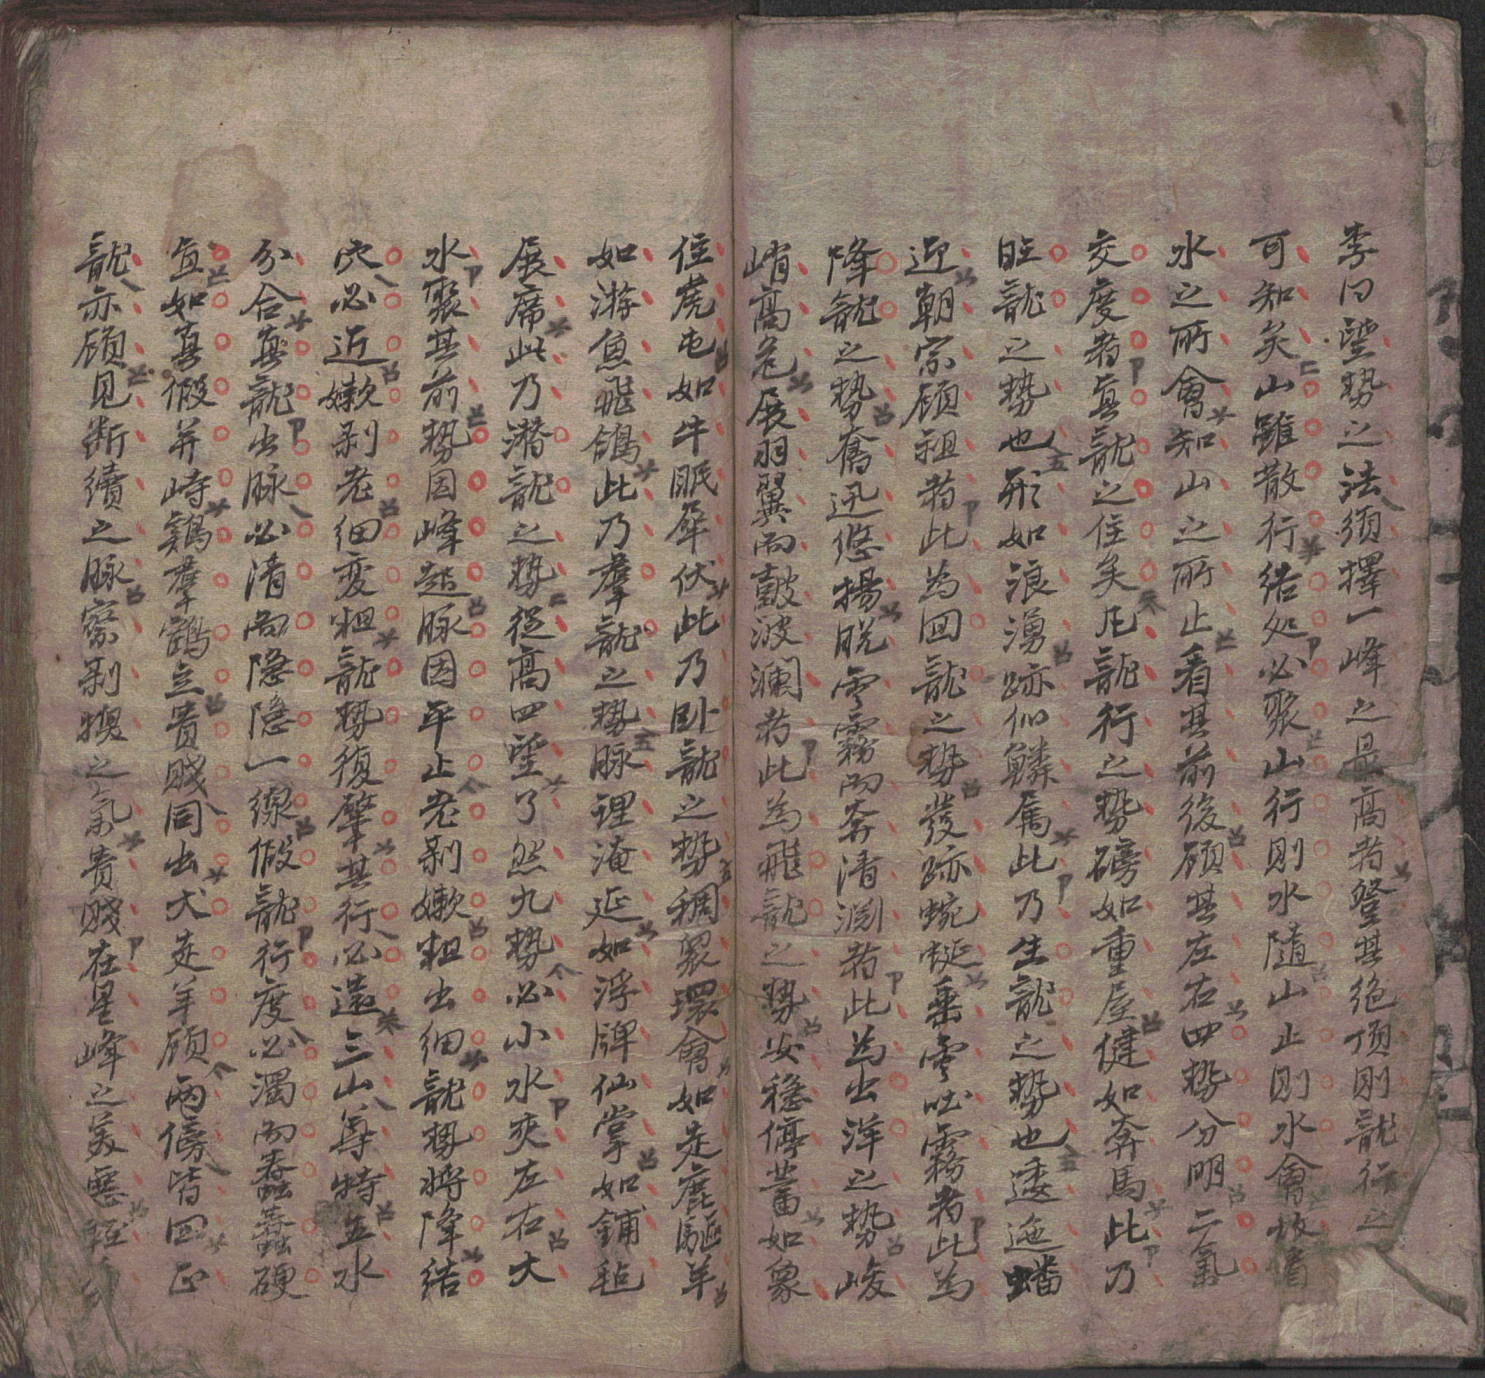 李曰望势之法須擇一峰之最高者登其絶頂則龍行之
可知矣山雖散行结処必聚山行則水隨山止則水會故審
水之所會知山之所止看其前後顧其左右四势分明二氣
交度者真龍之住矣凡龍行之势磅如重屋健如奔馬此乃
旺龍之势也形如浪湧跡似鱗駡此乃生龍之势也逶迤蟠
迎朝宗顧祖者此為回龍之势發跡蜿蜒乗雲吐霧者此為
降龍之势奮迅悠揚脱雲霧而奔清渊者此為出洋之势峻
峭高危展羽翼而鼓波澜者此為飛龍之势安穩停蓄如象
住虎屯如牛眠犀伏此乃卧龍之势稠衆環會如走鹿驅羊
如游魚飛鴿此乃羣龍之势脉理淹延如浮牌仙掌如鋪毡
展席此乃潜龍之势從高四望了然九势必小水夾左右大
水聚其前势因峰起脉因平止老剥嫩粗出细龍势将降结
穴必近嫩剥老细变粗龍势復肇其行必遠三山尊特五水
分合真龍出脉必清而隐隐一線假龍行度必濁而蠢蠢硬
直如真假并峙鷄羣鶴立贵贱同出犬走羊顧两傍皆回正
龍亦顧見断續之脉察剥換之氣贵贱在星峰之美惡軽